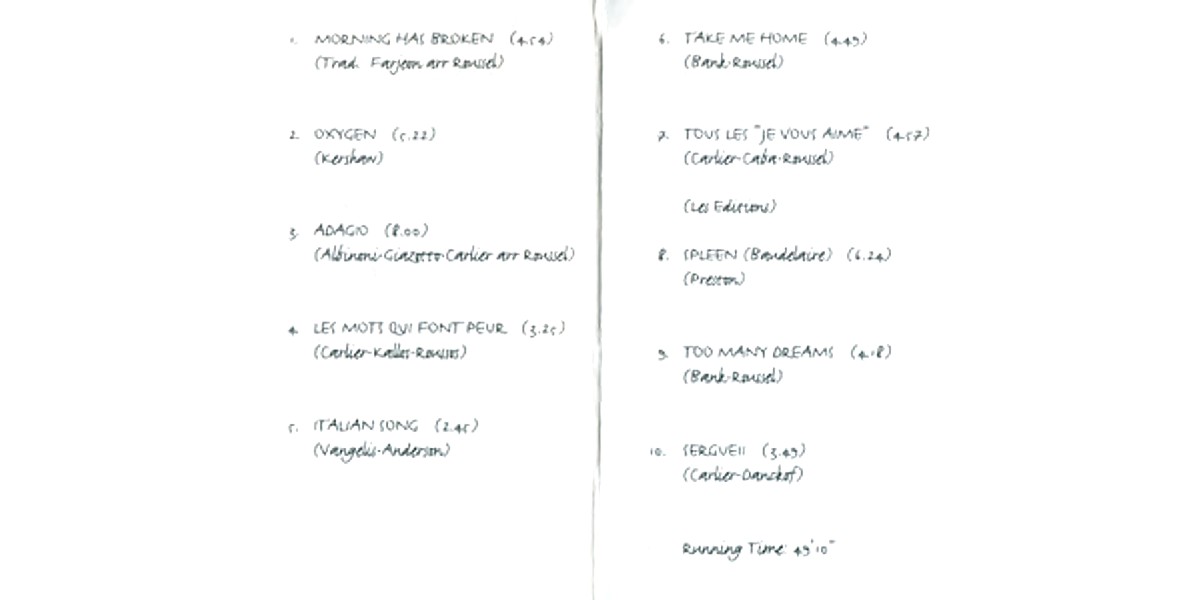 1. MORNING HAS BROKEN (4.54)
(Trad. Farjeon arr Roussel)
2. OXYGEN (5.22)
(Kershaw)
3. ADAGIO (8.00)
(Albinoni-Giazotto-Carlier arr Roussel)
4. LES MOTS QUI FONT PEUR (3.25)
(Carlier-Kalles-Roussos)
5. ITALIAN SONG (2.45)
(Vangelis-Anderson)
6. TAKE ME HOME (4.49)
(Bank-Roussel)
7. TOUS LES "JE VOUS AIME" (4.57)
(Carlier-Caba-Roussel)
(Les Editions)
8. SPLEEN (Baudelaire) (6.24)
(Preston)
9. TOO MANY DREAMS (4.18)
(Bank-Roussel)
10. SERGUEII (3.49)
(Carlier-Danckof)
Running Time: 49'10"